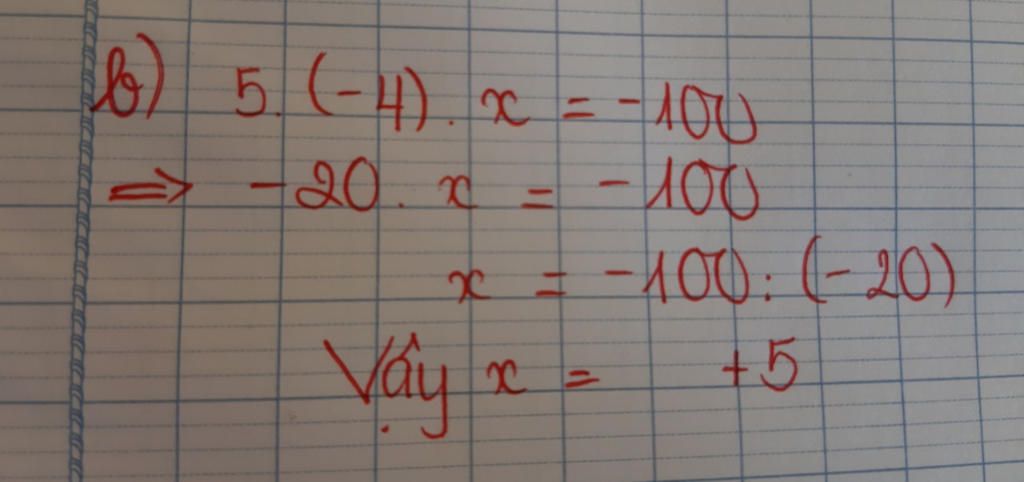 b) 5. (-4). x = -100
⇒ -20. x = -100
x = -100: (-20)
Vậy x = +5